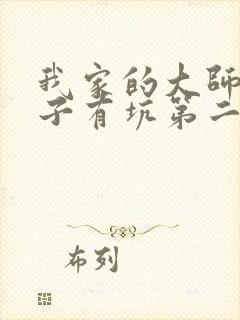 我家的大師
子有坑第二
布列